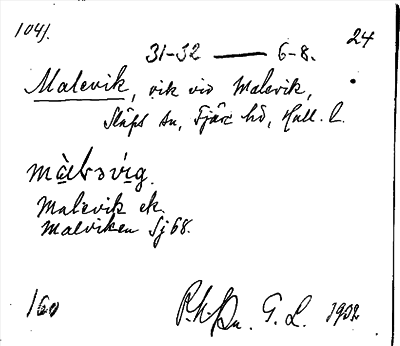 104). 24
31-32 — 6-8.
Malevik, vik vid Malevik,
Släps sn, Fjäre hd, Hall. l.
màlɘvíg.
Malevik ek.
Malviken Sj 68.
160 G. L. 1932